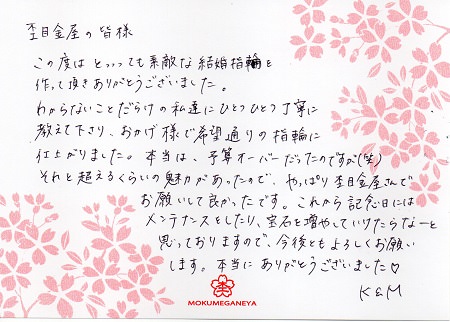 杢目金屋の皆様
この度は とっっっても素敵な結婚指輪を
作って頂きありがとうございました。
わからないことだらけの私達にひとつひとつ丁寧に
教えて下さり、おかげ様で希望通りの指輪に
仕上がりました。本当は、予算オーバーだったのですが(笑)
それを超えるくらいの魅力があったので、やっぱり杢目金屋さんで
お願いして良かったです。これから記念日には
メンテナンスをしたり、宝石を増やしていけたらなーと
思っておりますので、今後ともよろしくお願い
します。本当にありがとうございました♡
K&M
MOKUMEGANEYA